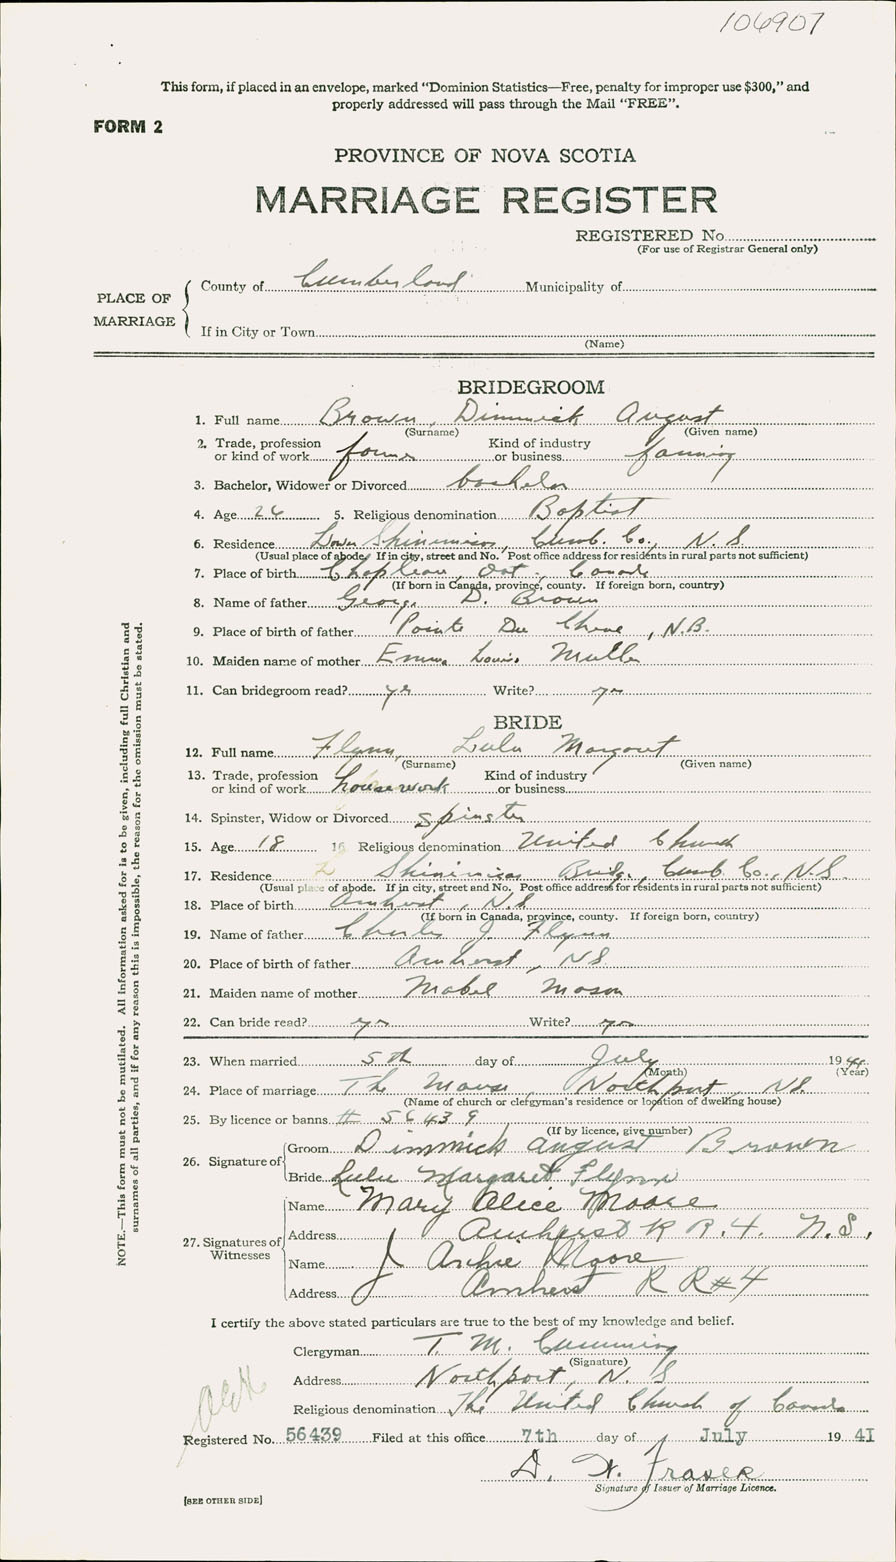 106907
This form, if placed in an envelope, marked "Dominion Statistics—Free, penalty for improper use $300," and
properly addressed will pass through the Mail "FREE".
FORM 2
PROVINCE OF NOVA SCOTIA
MARRIAGE REGISTER
REGISTERED No.
(For use of Registrar General only)
PLACE OF MARRIAGE
County of Cumberland Municipality of
If in City or Town
(Name)
BRIDEGROOM
1. Full name Brown, Dimmick August
(Surname) (Given name)
2. Trade, profession or kind of work farmer Kind of industry or business farming
3. Bachelor, Widower or Divorced bachelor
4. Age 26 5. Religious denomination Baptist
6. Residence Lower Shinimicas, Cumb. Co., N. S
(Usual place of abode. If in city, street and No. Post office address for residents in rural parts not sufficient)
7. Place of birth Chapleau, Ont. Canada
(If born in Canada, province, county. If foreign born, country)
8. Name of father George D. Brown
9. Place of birth of father Pointe Du Chene, N.B.
10. Maiden name of mother Emma Louise
11. Can bridegroom read? yes Write? yes
BRIDE
12. Full name Flynn, Lulu Margaret
(Surname) (Given name)
13. Trade, profession or kind of work housework Kind of industry or business
14. Spinster, Widow or Divorced spinster
15. Age 18 16 Religious denomination United Church
17. Residence Shinimicas Bridge, Cumb. Co., N.S.
(Usual place of abode. If in city, street and No. Post office address for residents in rural parts not sufficient)
18. Place of birth Amherst, N.S
(If born in Canada, province, county. If foreign born, country)
19. Name of father Charles J. Flynn
20. Place of birth of father Amherst, NS.
21. Maiden name of mother Mabel Mason
22. Can bride read? yes Write? yes
23. When married 5th day of July 19
(Month) (Year)
24. Place of marriage The Manse, Northport, NS.
(Name of church or clergyman's residence or location of dwelling house)
25. By licence or banns # 56439
(If by licence, give number)
26. Signature of Groom Dimmick August Brown
Bride Lulu Margaret Flynn
27. Signatures of Witnesses
Name Mary Alice Moore
Address Amherst R R. 4. N.S.
Name J Archie Moore
Address Amherst R R#4
I certify the above stated particulars are true to the best of my knowledge and belief.
Clergyman T. M. Cumming
(Signature)
Address Northport, N. S
Religious denomination The United Church of Canada
Registered No. 56439 Filed at this office 7th day of July 19 41
D. W. Fraser
Signature of Issuer of Marriage Licence.
[SEE OTHER SIDE]
NOTE.—This form must not be mutilated. All information asked for is to be given, including full Christian and
surnames of all parties, and if for any reason this is impossible, the reason for the omission must be stated.